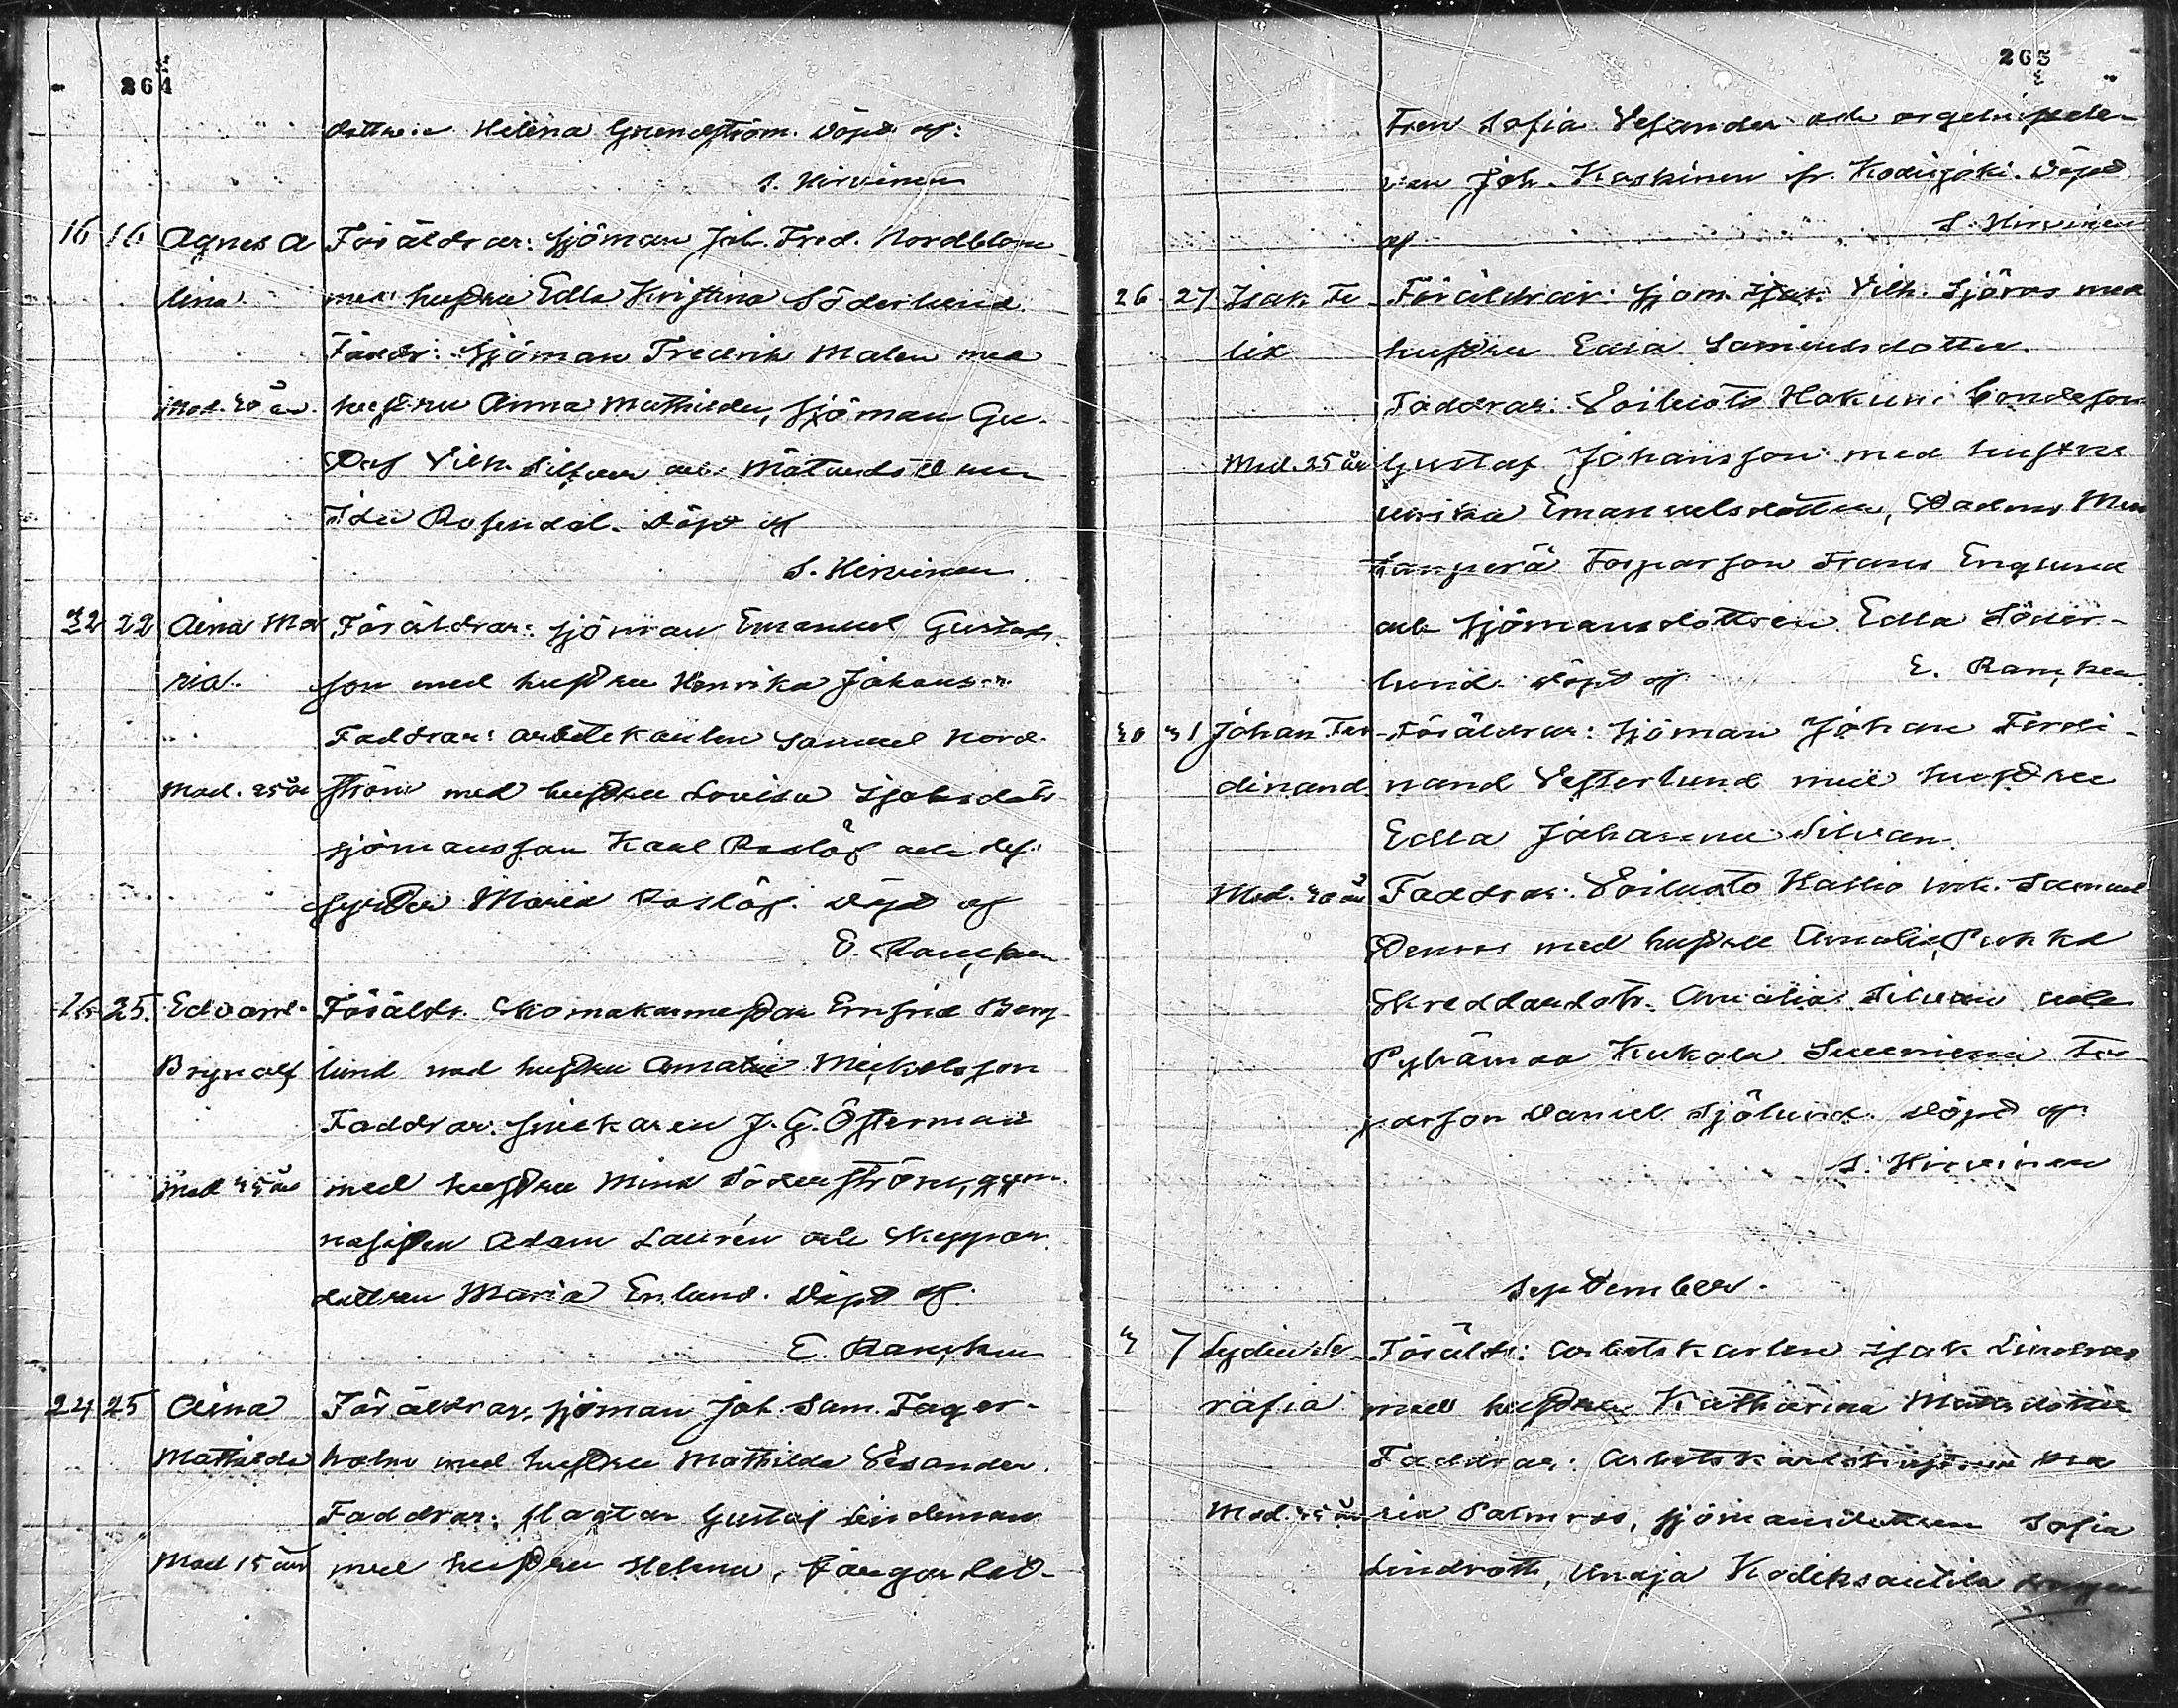 264
dottren Helena Grundström. Döpt af:
S. Hirvinen
16 16 Agnes A Föräldrar: sjöman Joh. Fred. Nordblom
lina. med hustru Edla Kristina Söderlund.
Faddr: sjöman Fredrik Malen med
Mod. 30 år. hustru Anna Mathilda, sjöman Gu-
staf Vilh. och
Ida Rosendal. Döpt af
S. Hirvinen
22 22 Aina Ma Föräldrar: sjöman Emanuel Gustafs-
ria. son med hustru Henrika Johans
Faddrar: arbetskarlen Samuel Nord-
Mod. 25 år ström med hustru Lovisa Isaksdotr
sjömansson Karl Roslöf och des
syster Maria Roslöf. Döpt af
E. Rancken
25. Edvard Föräldr. Skomakaremästar Enfrid Berg-
Brynolf lund med hustru Amalia Mickelsson
Faddrar: snickaren J. G. Österman
Mod år med hustru Mina Söderström, gym-
nasisten Adam Laurén och Skeppar
dottren Maria Enlund. Döpt af
E. Rancken
24 25 Aina Föräldrar, sjöman Joh. Sam. Fager-
Mathilda holm med hustru Mathilda Vesander.
Faddrar: slagtar Gustaf Lindeman
Mod år med hustru Helena, färgardot-
265
tren Sofia Vesander och orgelnistele-
ven Joh. Koskinen fr. Kodisjoki. Döpt
af S. Hirvinen
26 27 Isak Fe- Föräldrar: sjöm. Isak Vilh. Sjöros med
lix hustru Edla Samuelsdotter.
Faddrar: Voiluoto Hakuni bondeson
Mod. 25 år Gustaf Johansson med hustru
Ulrika Emanuelsdotter,
Torparson Frans Englund
och sjömansdottren Edla Söder-
lund. Döpt af E. Rancken
30 31 Johan Fer- Föräldrar: sjöman Johan Ferdi-
dinand. nand Vesterlund med hustru
Edla Johanna Silvan.
Mod. 30 år Faddrar: Voiluoto Kallio Samuel
Stenros med hustru Amalia,
Skreddardotr. Amalia Silvan och
Pyhämaa Kukola Suuniemi Tor-
parson Daniel Sjölund. Döpt af
S. Hirvinen
September.
3 7 Lydia Se- Föräldr: arbetskarlen Isak Lindroos
rafia med hustru Katharina Matsdotter
Faddrar: arbetskarlshustrun Ma
Mod. år ria Palmroos, sjömansdottren Sofia
Lindroth, Unaja Kodiksantila